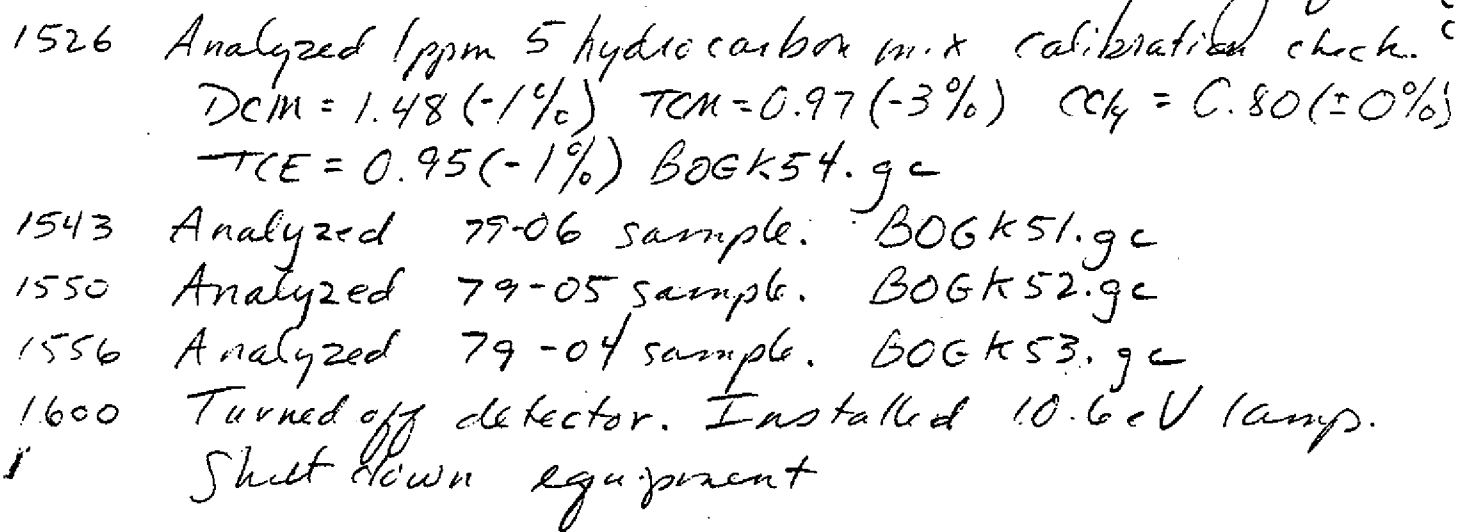 1526 Analyzed 1ppm 5 hydrocarbon mix calibration check.
DCM = 1.48 (-1%) TCM = 0.97 (-3%) CCl4 = 0.80 (±0%)
TCE = 0.95 (-1%) BOGK54.gc
1543 Analyzed 79-06 sample. BOGK51.gc
1550 Analyzed 79-05 sample. BOGK52.gc
1556 Analyzed 79-04 sample. BOGK53.gc
1600 Turned off detector. Installed 10.6eV lamp.
Shut down equipment